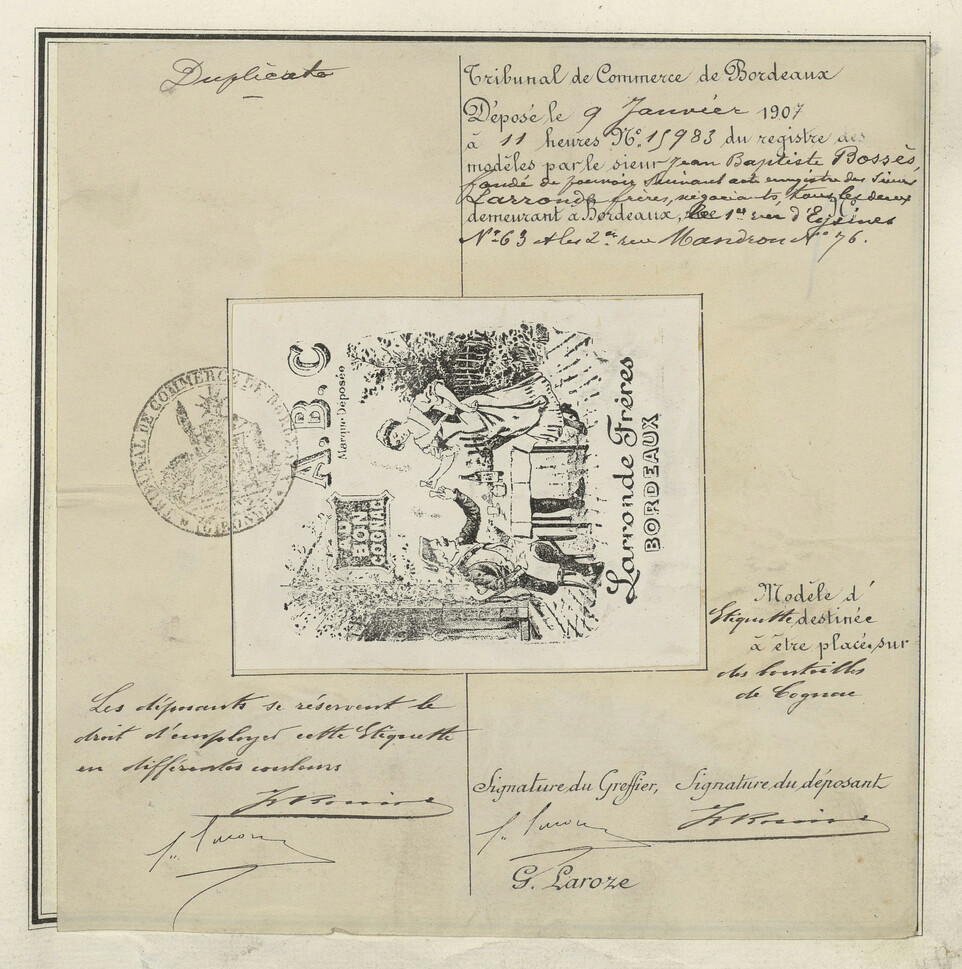 Duplicata
Tribunal de Commerce de Bordeaux
Déposé le 9 Janvier 1907
à 11 heures No. 15983 du registre des
modèles par le sieur Jean Baptiste Bossès,
fondé de pouvoir suivant acte enregistré des Sieurs
Larronde frères, négociants, tous les deux
demeurant à Bordeaux, le 1er rue d'Eysines
No 63 et les 2e rue Mandron No 76.
TRIBUNAL DE COMMERCE DE BORDEAUX
(GIRONDE)
A.B.C
Marque Déposée
AU
BON
COGNAC
Larronde Frères
BORDEAUX
Modèle d'
Etiquette destinée
à être placée sur
des bouteilles
de Cognac
Les déposants se réservent le
droit d'employer cette Etiquette
en différentes couleurs
Signature du Greffier, Signature du déposant
G. Laroze